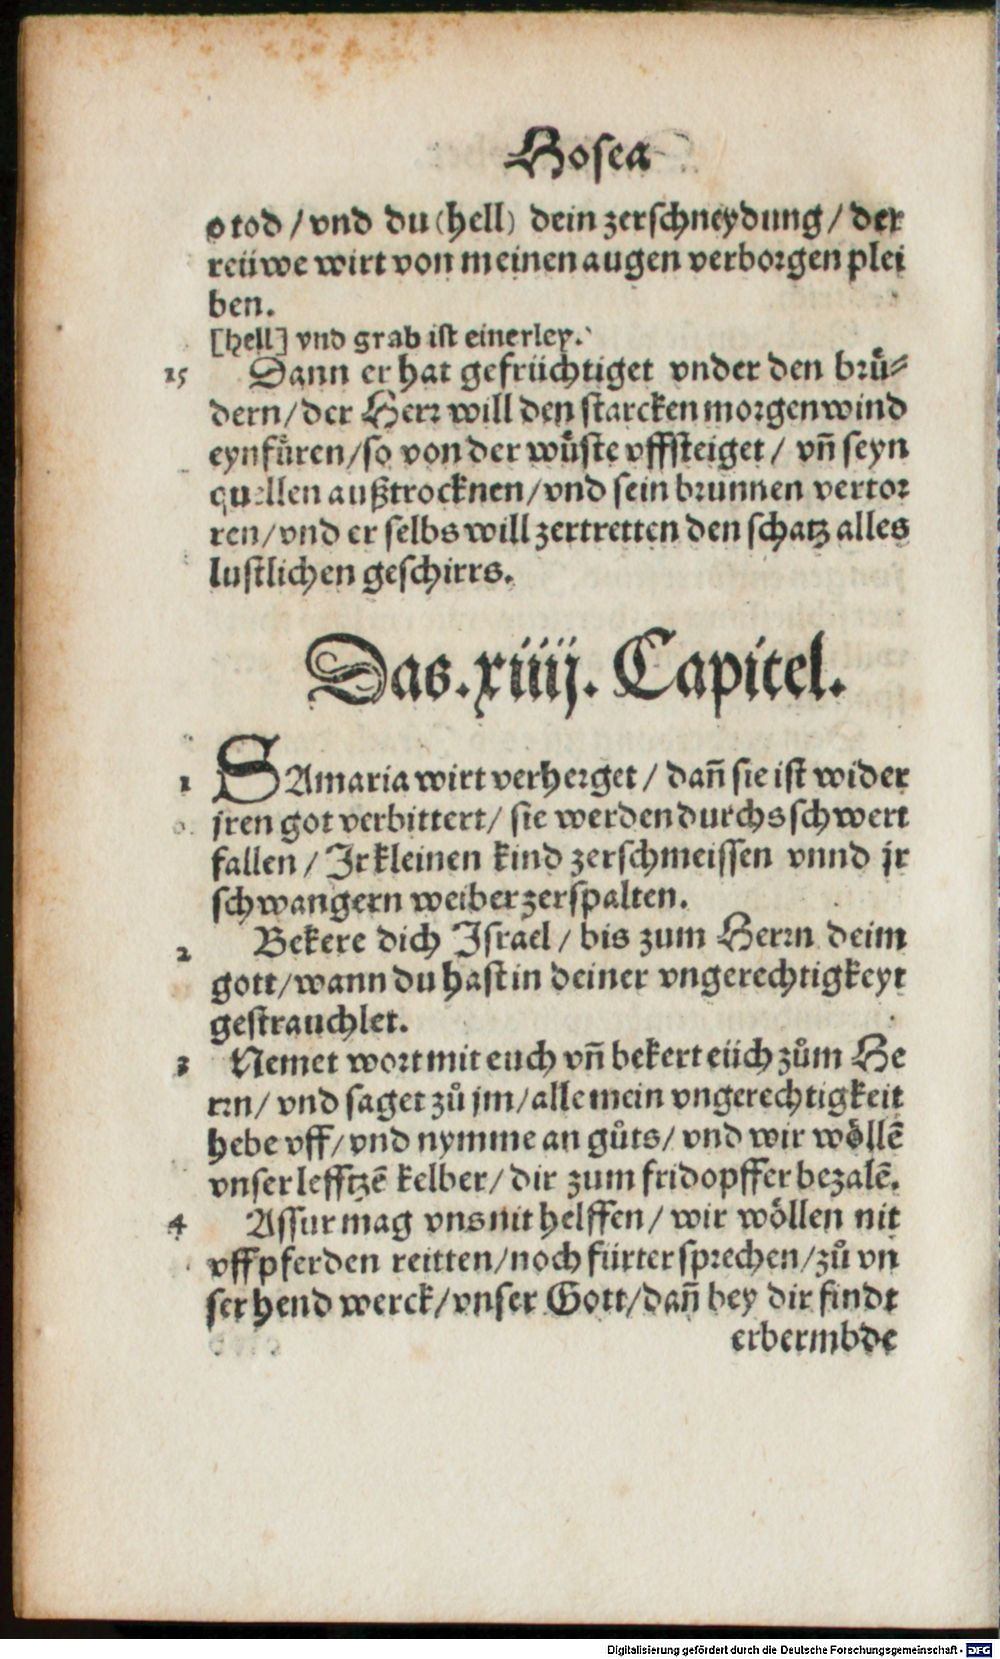 Hosea
o tod / vnd du (hell) dein zerschneydung / der
reüwe wirt von meinen augen verborgen plei
ben.
[hell] vnd grab ist einerley.
15 Dann er hat gefrüchtiget vnder den brů⸗
dern / der Herr will den starcken morgenwind
eynfüren / so von der wůste vffsteiget / vñ seyn
quellen außtrocknen / vnd sein brunnen vertor
ren / vnd er selbs will zertretten den schatz alles
lustlichen geschirrs.
Das .xiiij. Capitel.
1 SAmaria wirt verherget / dañ sie ist wider
jren got verbittert / sie werden durchs schwert
fallen / Ir kleinen kind zerschmeissen vnnd jr
schwangern weiber zerspalten.
2 Bekere dich Israel / bis zum Herrn deim
gott / wann du hast in deiner vngerechtigkeyt
gestrauchlet.
3 Nemet wort mit euch vñ bekert eüch zům He
rrn / vnd saget zů jm / alle mein vngerechtigkeit
hebe vff / vnd nymme an gůts / vnd wir wöllē
vnser lefftzē kelber / dir zum fridopffer bezalē.
4 Assur mag vns nit helffen / wir wöllen nit
vff pferden reitten / noch fürter sprechen / zů vn
ser hend werck / vnser Gott / dañ bey dir findt
erbermbde
Digitalisierung gefördert durch die Deutsche Forschungsgemeinschaft - DFG